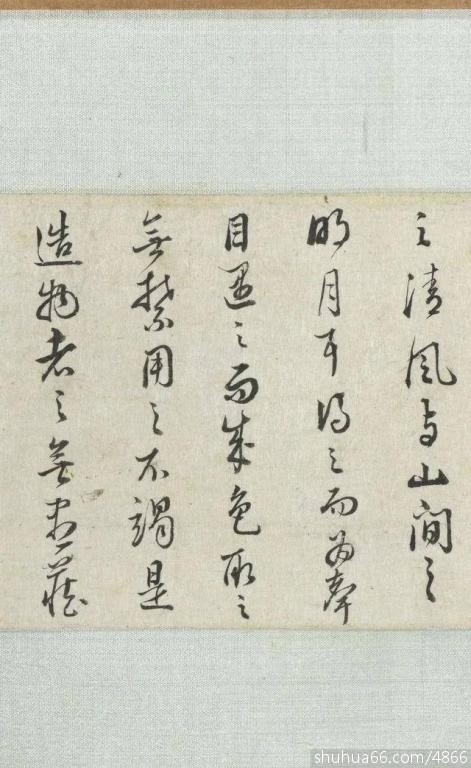 之清風与山間之
明月耳得之而為聲
目遇之而成色取之
無禁用之不竭是
造物者之無盡藏
shuhua66.com/4866